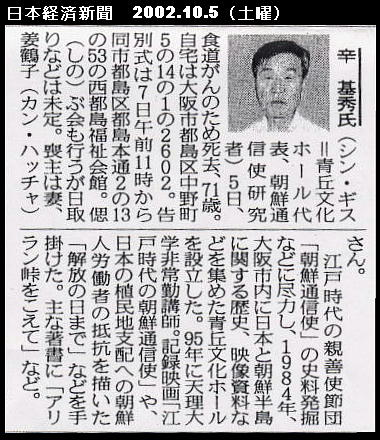 日本経済新聞　2002.10.5（土曜）
辛　基秀氏
（シン・ギス
＝青丘文化
ホール代
表、朝鮮通
信使研究
者）５日、
食道がんのため死去、71歳。
自宅は大阪市都島区中野町
５の14の１の２６０２。告
別式は７日午前11時から
同市都島区都島本通２の13
の53の西都島福祉会館。偲
（しの）ぶ会も行うが日取
りなどは未定。喪主は妻、
姜鶴子（カン・ハッチャ）
さん。
江戸時代の親善使節団
「朝鮮通信使」の史料発掘
などに尽力し、１９８４年、
大阪市内に日本と朝鮮半島
に関する歴史、映像資料な
どを集めた青丘文化ホール
を設立した。95年に天理大
学非常勤講師。記録映画「江
戸時代の朝鮮通信使」や、
日本の植民地支配への朝鮮
人労働者の抵抗を描いた
「解放の日まで」などを手
掛けた。主な著書に「アリ
ラン峠をこえて」など。